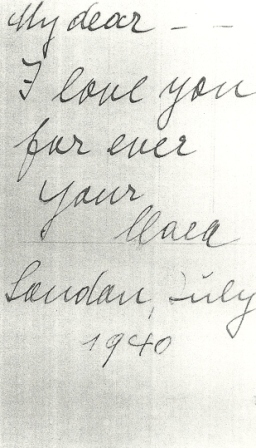 My dear - -
I love you
for ever
your
London, July
1940